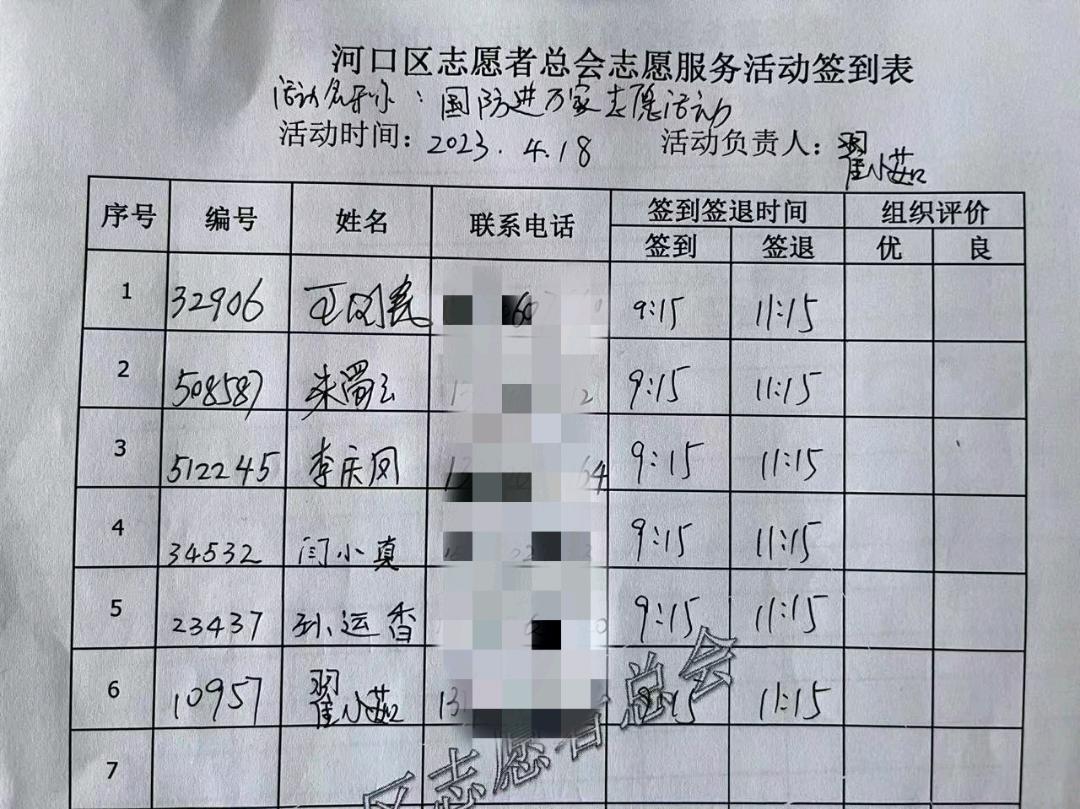 河口区志愿者总会志愿服务活动签到表
活动名称：国防进万家志愿活动
活动时间：2023.4.18 活动负责人：翟小茹
序号 编号 姓名 联系电话 签到签退时间 组织评价
签到 签退 优 良
1 32906 9:15 11:15
2 508587 9:15 11:15
3 512245 李庆凤 9:15 11:15
4 34532 闫小真 9:15 11:15
5 23437 孙运香 9:15 11:15
6 10957 翟小茹 11:15
7
区志愿者总会